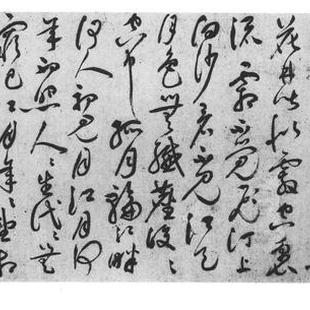 花林皆似霰空裏
流霜不覺飛汀上
白沙看不見江天
一色無纖塵皎〻
空中孤月輪江畔
何人初見月江月何
年初照人〻生代〻無
窮已江月年〻望相